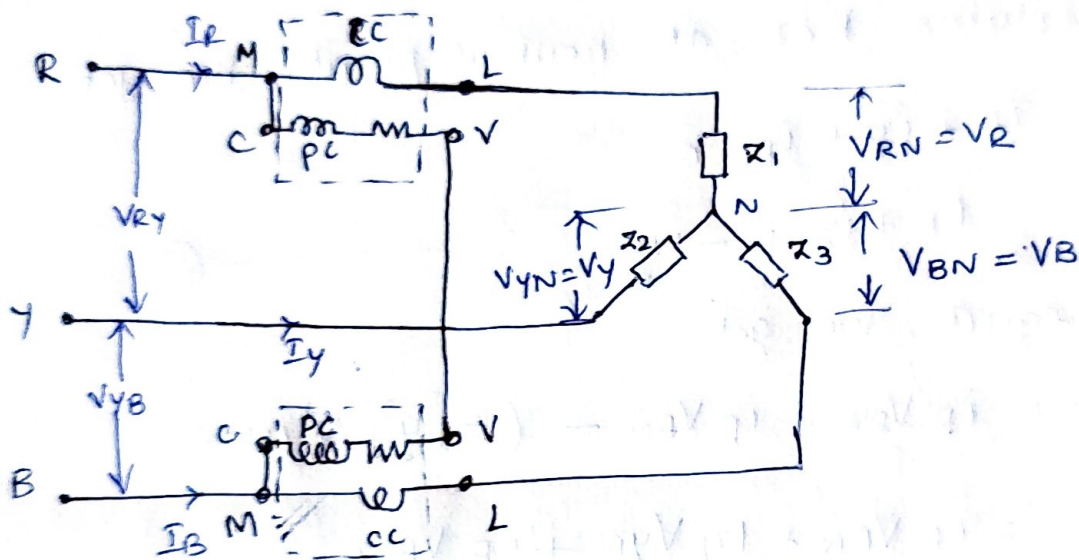 I_R
M
CC
L
R
C
PC
V
Z1
V_RN = V_R
N
V_RY
Z2
Z3
V_YN = V_Y
V_BN = V_B
Y
I_Y
V_YB
C
PC
V
B
I_B
M
CC
L